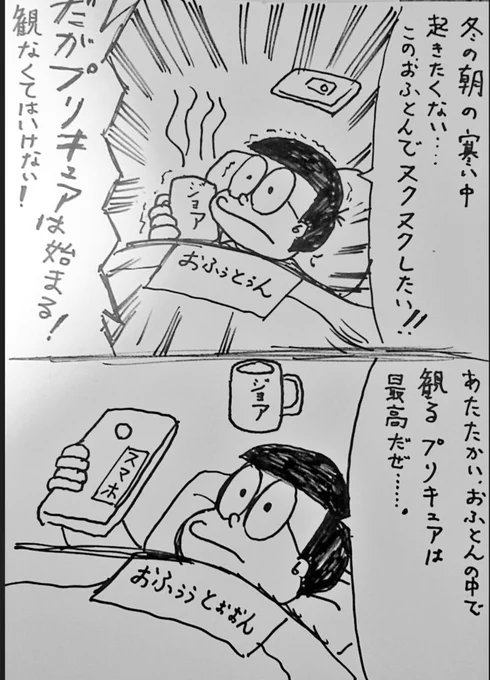 冬の朝の寒い中
起きたくない・・・
この、おふとんでヌクヌクしたい!!
ジョア
おふぅとぅん
だがプリキュアは始まる!
観なくてはいけない!
あたたかい、おふとんの中で
観るプリキュアは
最高だぜ・・・・・・。
ジョア
スマホ
おふぅぅとぉおん